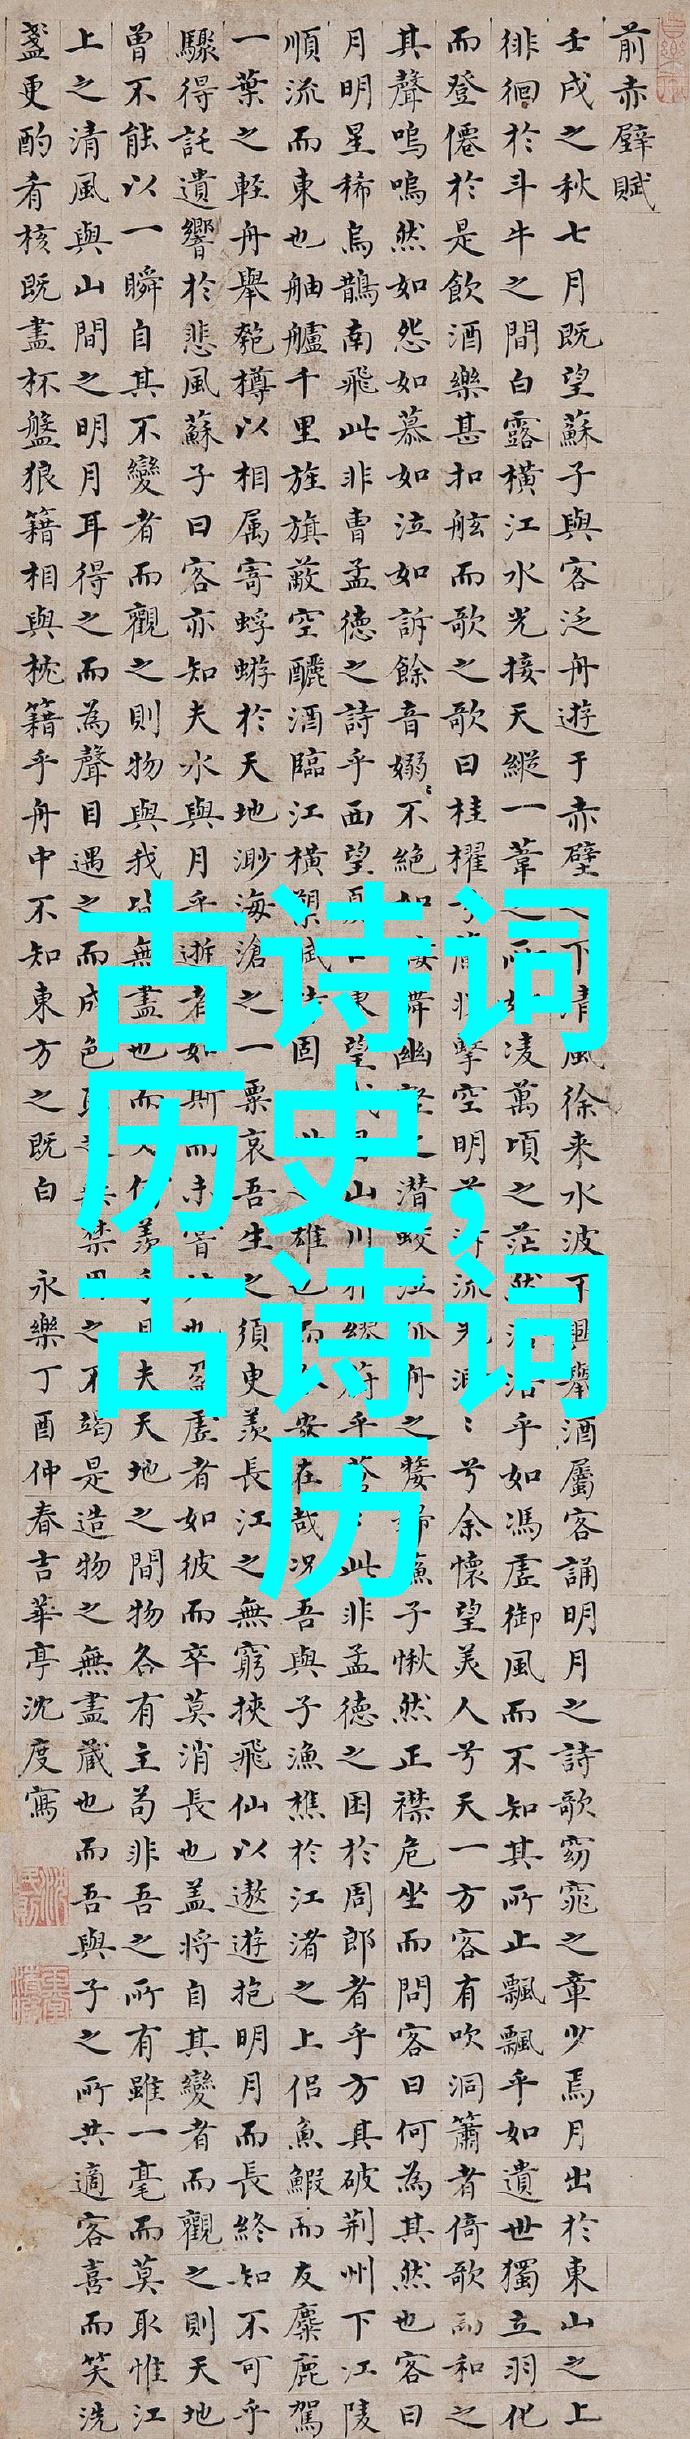 前赤壁賦
壬戌之秋七月既望蘇子與客泛舟遊于赤壁之下清風徐来水波不興舉酒屬客誦明月之詩歌窈窕之章少焉月出於東山之上
徘徊於斗牛之間白露橫江水光接天縱一葦之所如凌萬頃之茫然浩浩乎如馮虛御風而不知其所止飄飄乎如遺世獨立羽化
而登僊於是飲酒樂甚扣舷而歌之歌曰桂櫂兮蘭槳擊空明兮泝流光渺渺兮余懷望美人兮天一方客有吹洞簫者倚歌而和之
其聲嗚嗚然如怨如慕如泣如訴餘音嫋嫋不絕如縷舞幽壑之潛蛟泣孤舟之嫠婦蘇子愀然正襟危坐而問客曰何為其然也客曰
月明星稀烏鵲南飛此非曹孟德之詩乎西望夏口東望武昌山川相繆鬱乎蒼蒼此非孟德之困於周郎者乎方其破荆州下江陵
順流而東也舳艫千里旌旗蔽空釃酒臨江橫槊賦詩固一世之雄也而今安在哉况吾與子漁樵於江渚之上侣魚鰕而友麋鹿駕
一葉之輕舟舉匏樽以相属寄蜉蝣於天地渺海滄之一粟哀吾生之須臾羨長江之無窮挾飛仙以遨遊抱明月而長終知不可乎
驟得託遺響於悲風蘇子曰客亦知夫水與月乎逝者如斯而未嘗往也盈虛者如彼而卒莫消長也盖将自其變者而觀之則天地
曾不能以一瞬自其不變者而觀之則物與我皆無盡也而又何羨乎且夫天地之間物各有主苟非吾之所有雖一毫而莫取惟江
上之清風與山間之明月耳得之而為聲目遇之而成色取之無禁用之不竭是造物之無盡藏也而吾與子之所共適客喜而笑洗
盞更酌肴核既盡杯盤狼籍相與枕籍乎舟中不知東方之既白 永樂丁酉仲春吉華亭沈度寫
古诗词
历史,
古诗词
历